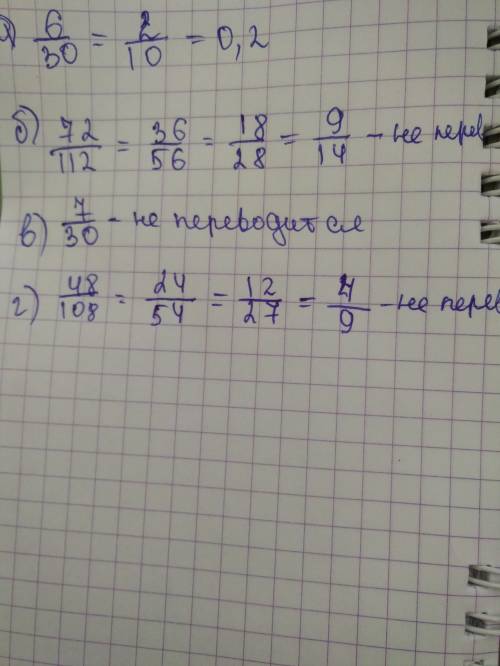 6/30 = 2/10 = 0,2
б) 72/112 = 36/56 = 18/28 = 9/14 - не перев
в) 7/30 - не переводится
г) 48/108 = 24/54 = 12/27 = 4/9 - не перев